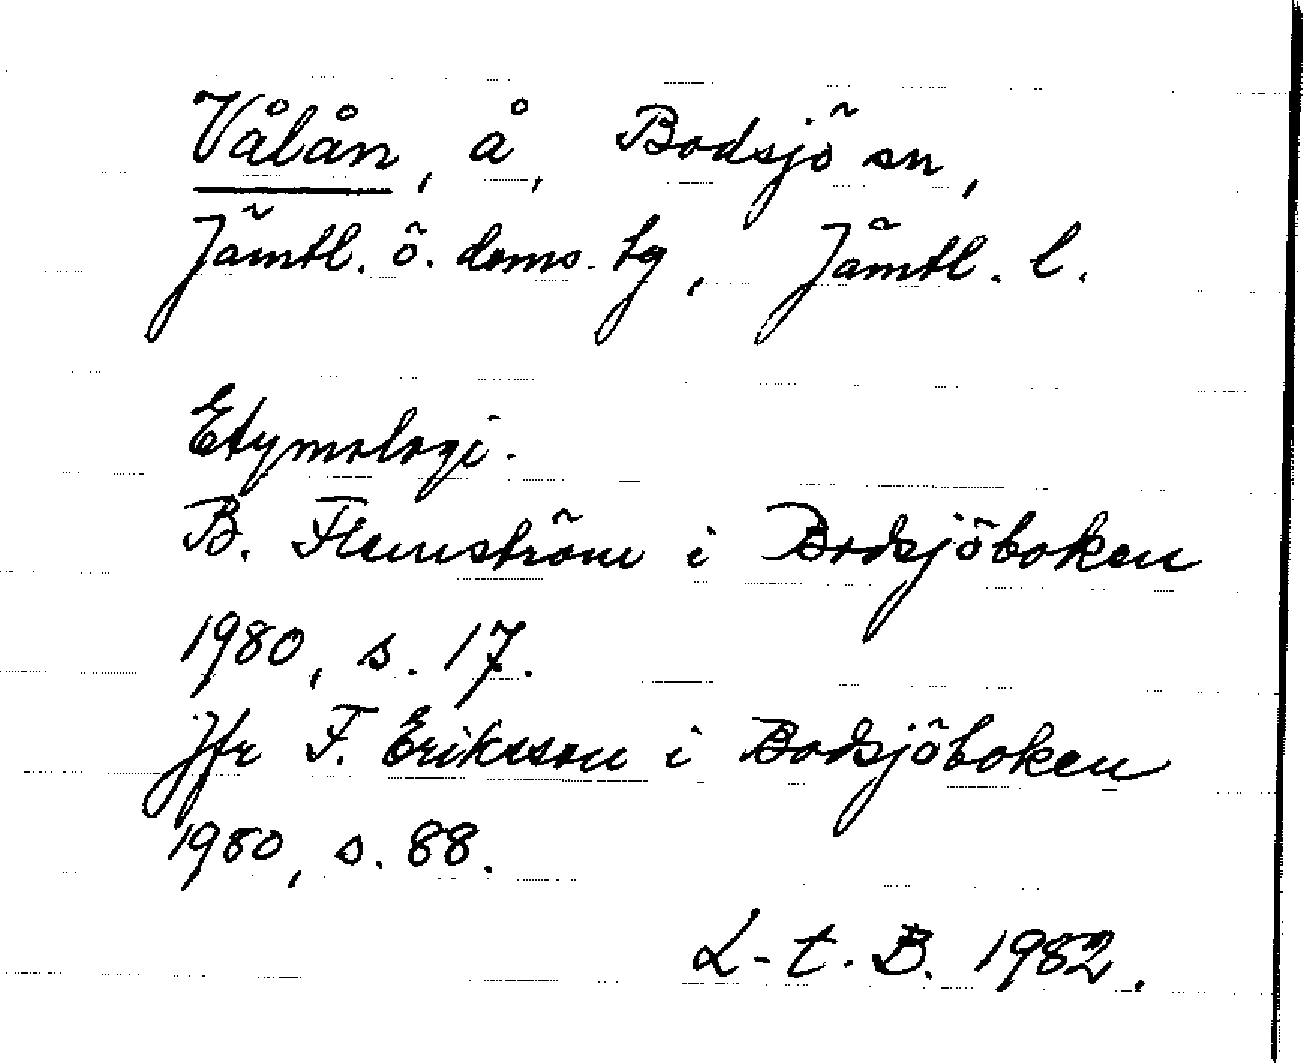 Vålån, å, Bodsjö sn,
Jämtl. ö. doms. tg, Jämtl. l.
Etymologi.
B. Flemström i Bodsjöboken
1980, s. 17.
Jfr F. Eriksson i Bodsjöboken
1980, s. 88.
L-t. B. 1982.